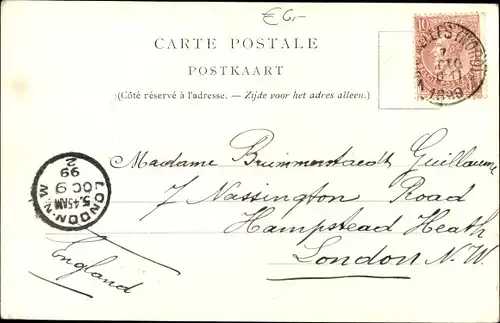 €6,-
CARTE POSTALE
POSTKAART
(Côté réservé à l'adresse. — Zijde voor het adres alleen.)
10
(NORD)
1899
LONDON. N.W
5.45AM
OC 9
99
2
Madame Brimmerstaedt Guillaume
7 Nassington Road
Hampstead Heath
London N.W.
England